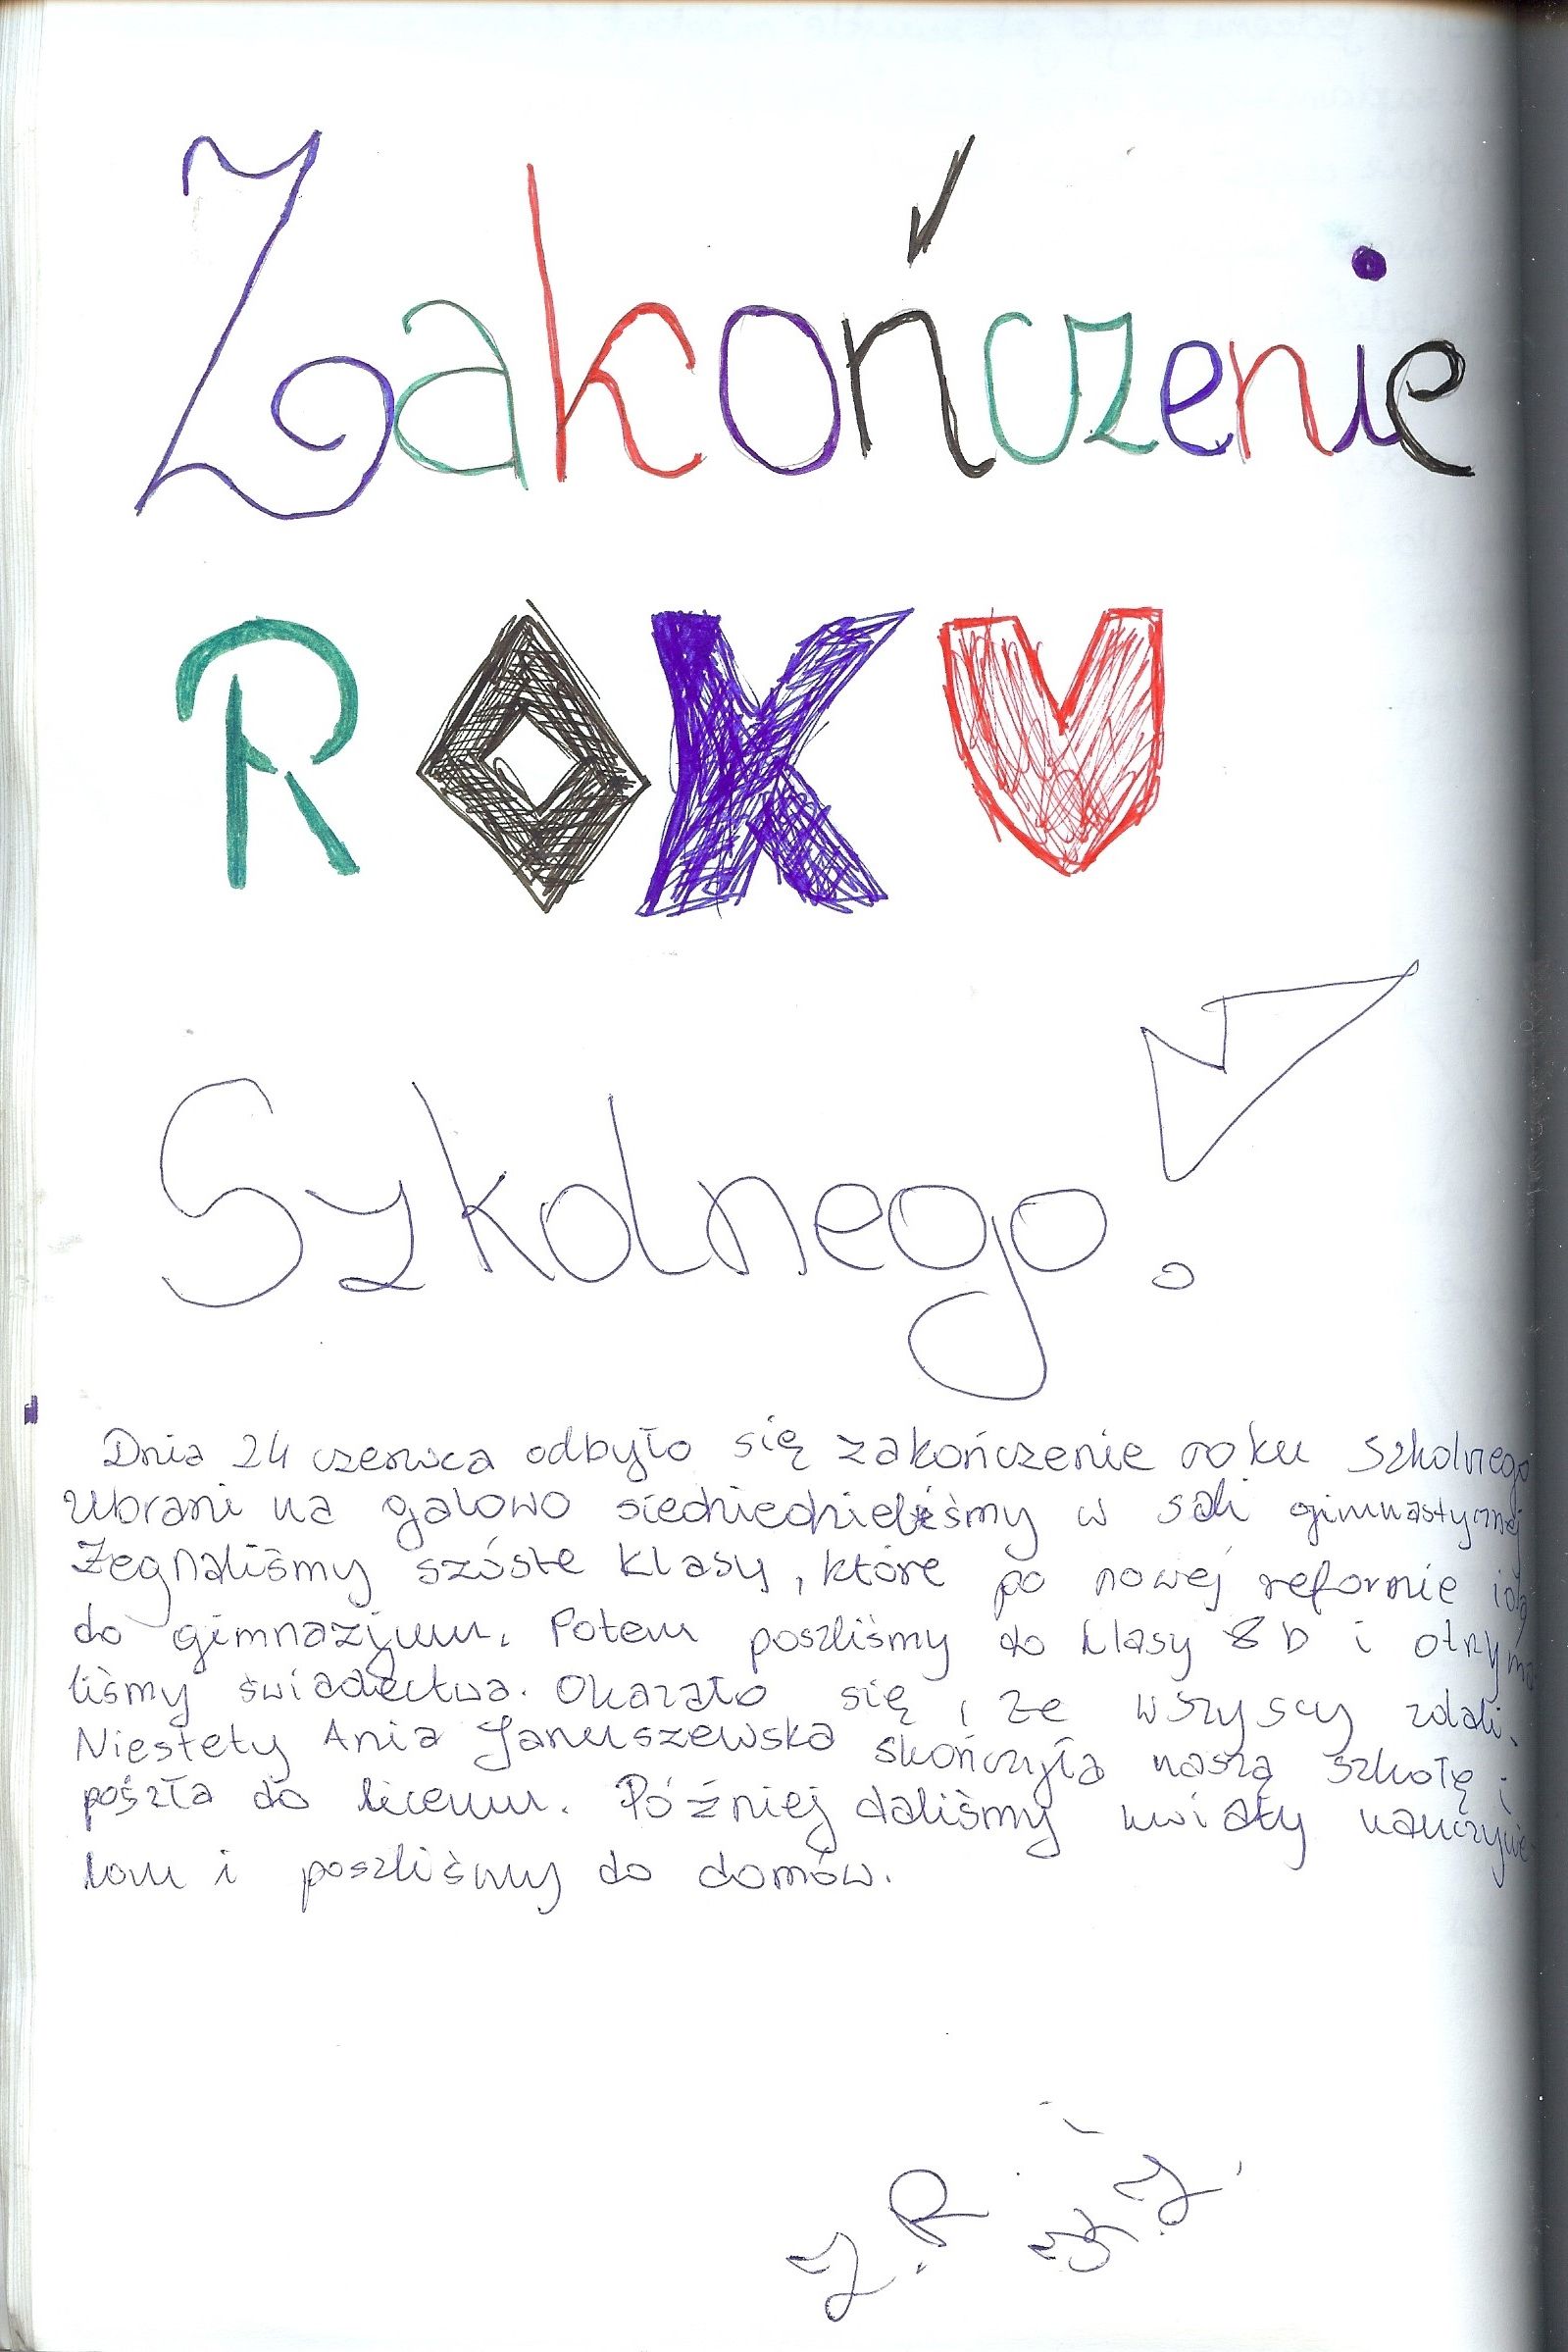 Zakończenie
ROKU
Szkolnego!
Dnia 24 czerwca odbyło się zakończenie roku szkolnego
Ubrani na galowo siedziedzieliśmy w sali gimnastycznej
Żegnaliśmy szóste klasy, które po nowej reformie idą
do gimnazjum. Potem poszliśmy do klasy 8 b i otrzyma
liśmy świadectwa. Okazało się, że wszyscy zdali.
Niestety Ania Januszewska skończyła naszą szkołę i
poszła do liceum. Później daliśmy kwiaty nauczycie-
lom i poszliśmy do domów.
J.R